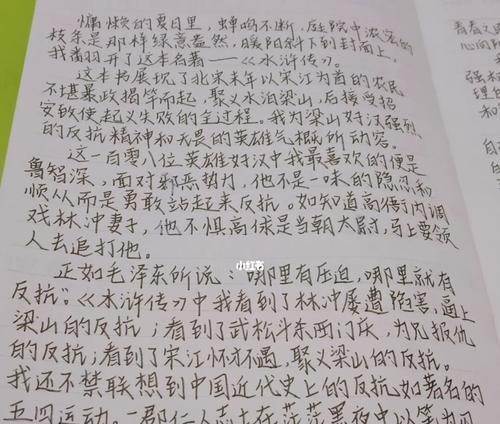 慵懒的夏日里，蝉鸣不断，庭院中浓密的
枝条是那样绿意盎然，暖阳斜下到封面上，
我翻开了这本名著——《水浒传》。
这本书展现了北宋末年以宋江为首的农民
不堪暴政揭竿而起，聚义水泊梁山，后接受招
安致使起义失败的全过程。我为梁山好汉强烈
的反抗精神和无畏的英雄气概所动容。
这一百零八位英雄好汉中我最喜欢的便是
鲁智深，面对邪恶势力，他不是一味的隐忍和
顺从而是勇敢站起来反抗。如知道高衙内调
戏林冲妻子，他不惧高俅是当朝太尉，马上要领
人去追打他。
正如毛泽东所说：“哪里有压迫，哪里就有
反抗”。《水浒传》中我看到了林冲屡遭陷害，逼上
梁山的反抗；看到了武松斗东西门庆，为兄报仇
的反抗；看到了宋江怀才不遇，聚义梁山的反抗。
我还不禁联想到中国近代史上的反抗，如著名的
五四运动。一群仁人志士在茫茫黑夜中以笔为
小红书
青春
心间
强
理
和
自